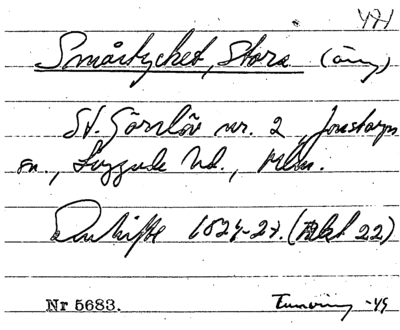 471
Småstycket, Stora (äng)
St. Görslöv nr. 2, Jonstorps
sn., Luggude hd., Mlm.
Enskifte 1824-27. (Akt 22)
Nr 5683. -49